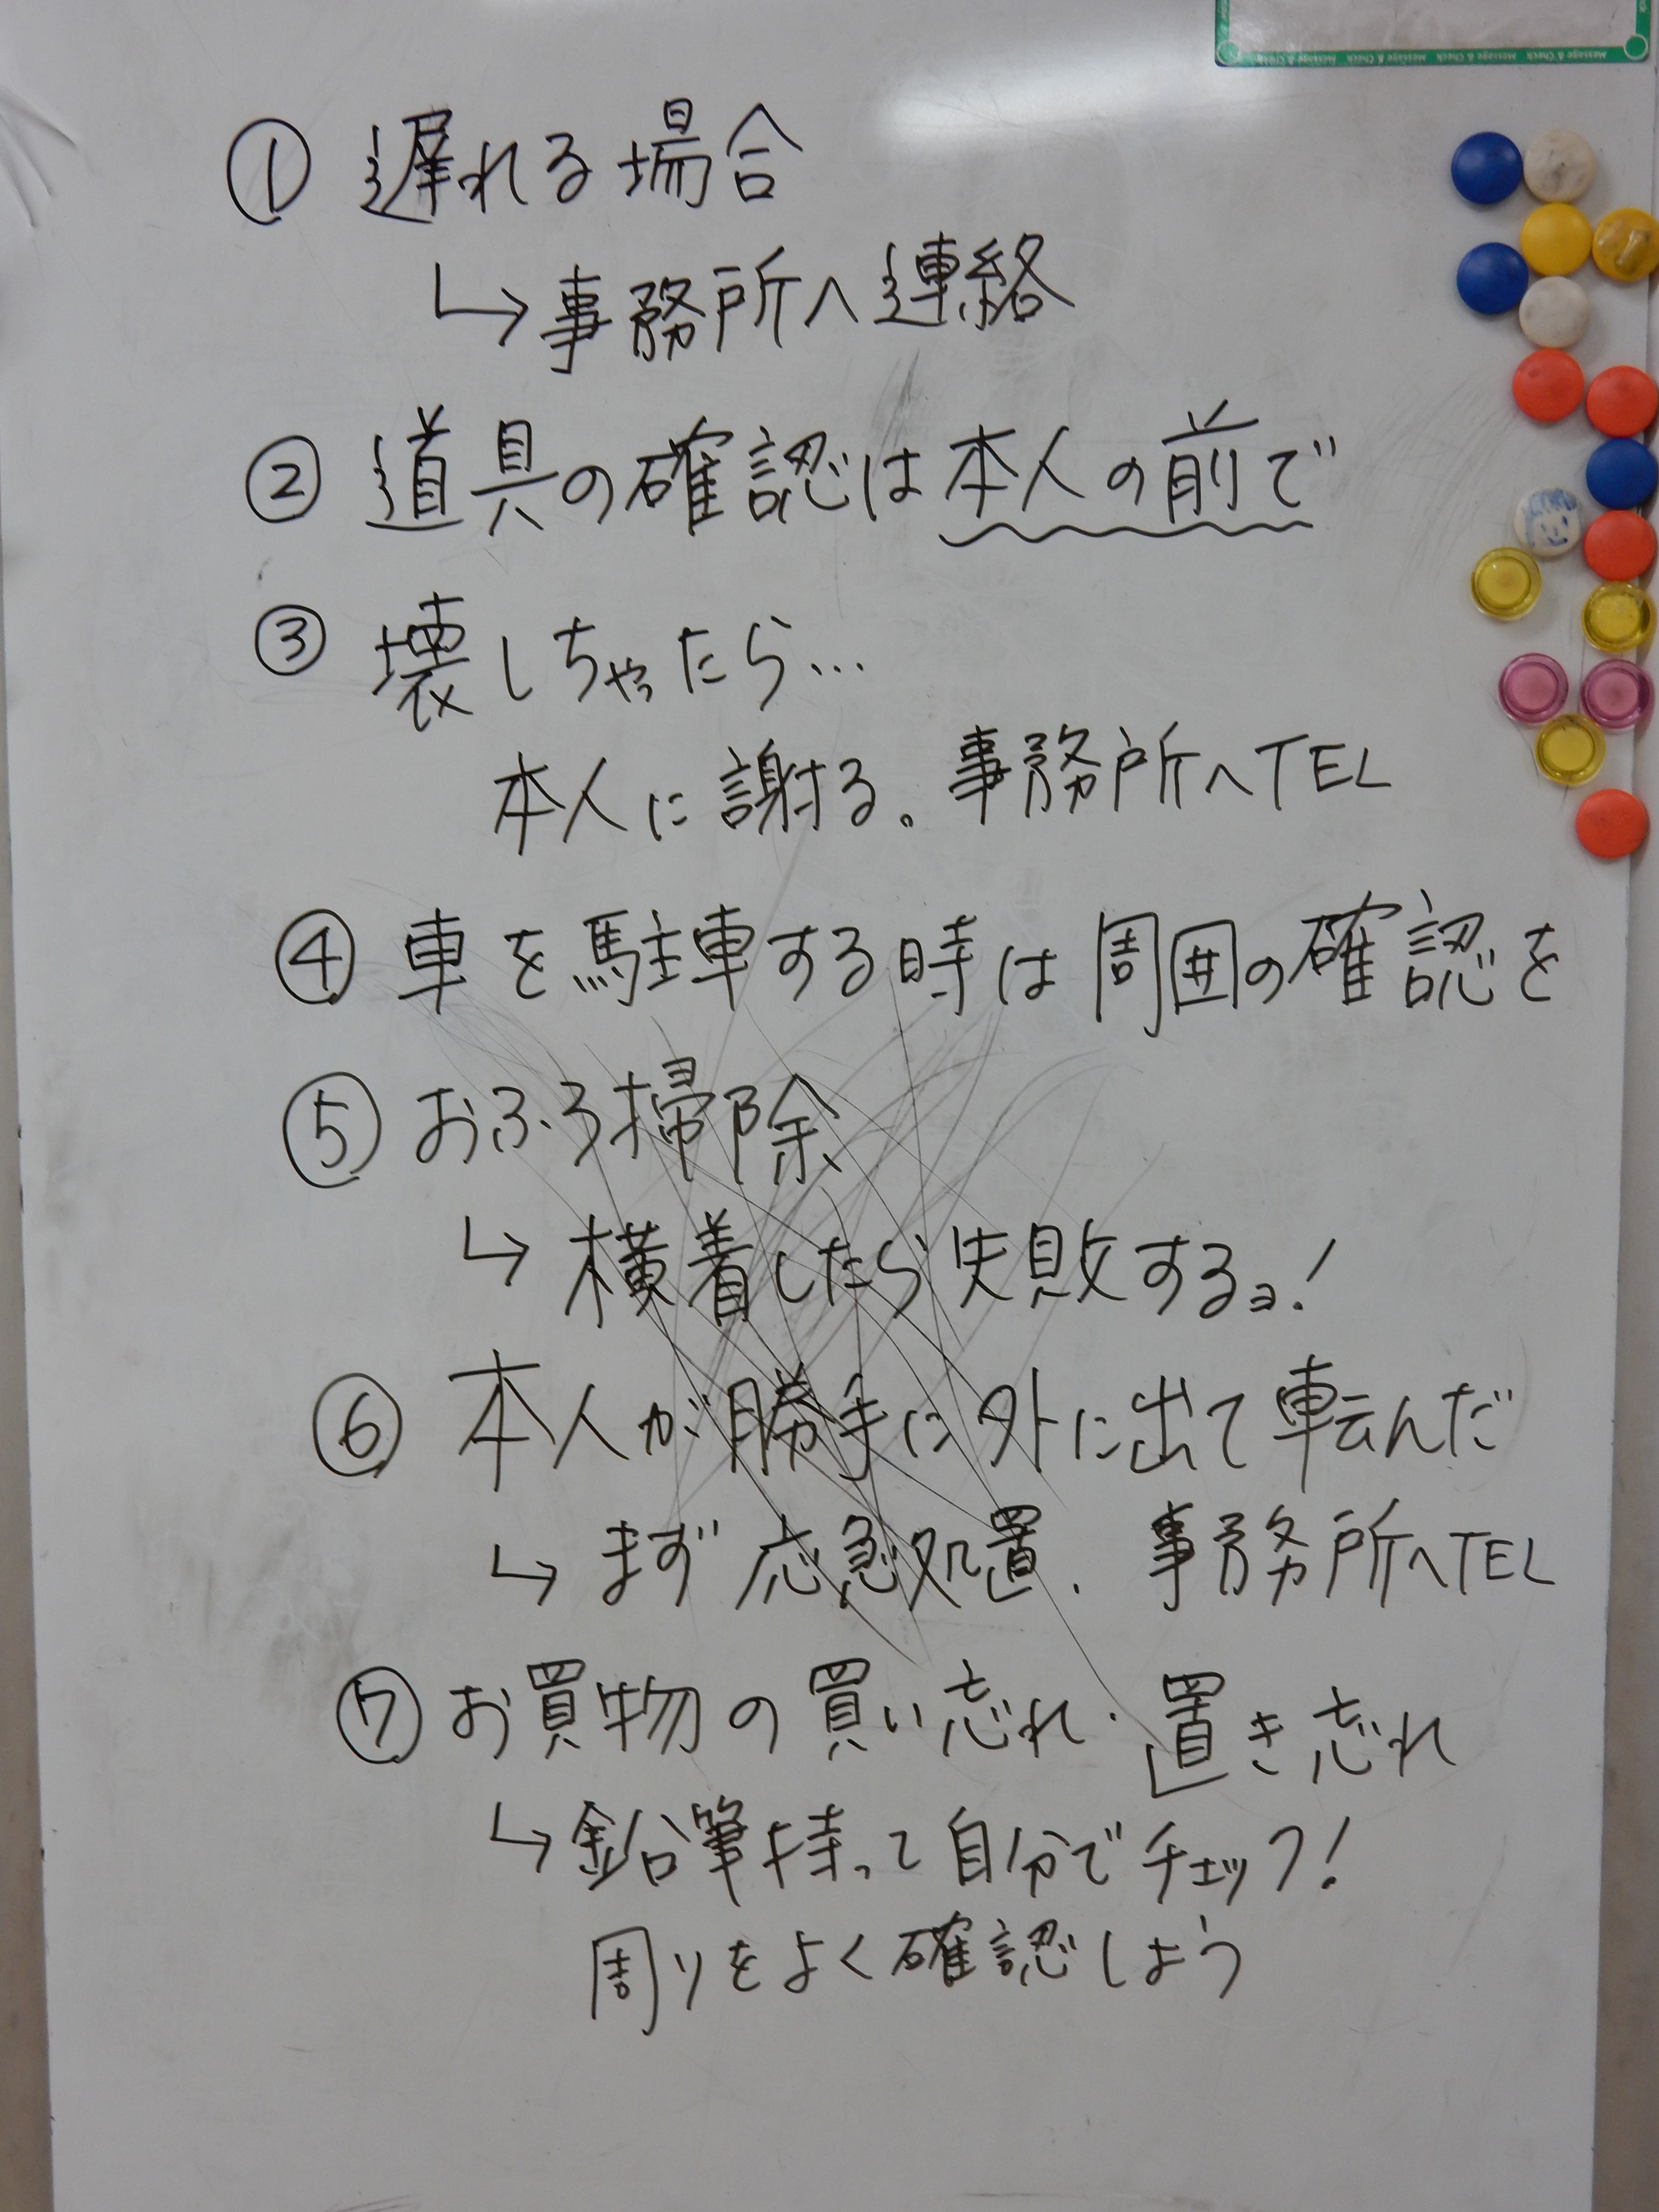 Message & Check Message & Check Message & Check Message & Check
① 遅れる場合
↳事務所へ連絡
② 道具の確認は本人の前で
③ 壊しちゃったら…
本人に謝る。事務所へTEL
④ 車を駐車する時は周囲の確認を
⑤ おふろ掃除
↳ 横着したら失敗するョ!
⑥ 本人が勝手に外に出て転んだ
↳ まず応急処置. 事務所へTEL
⑦ お買物の買い忘れ・置き忘れ
↳鉛筆持って自分でチェック!
周りをよく確認しよう